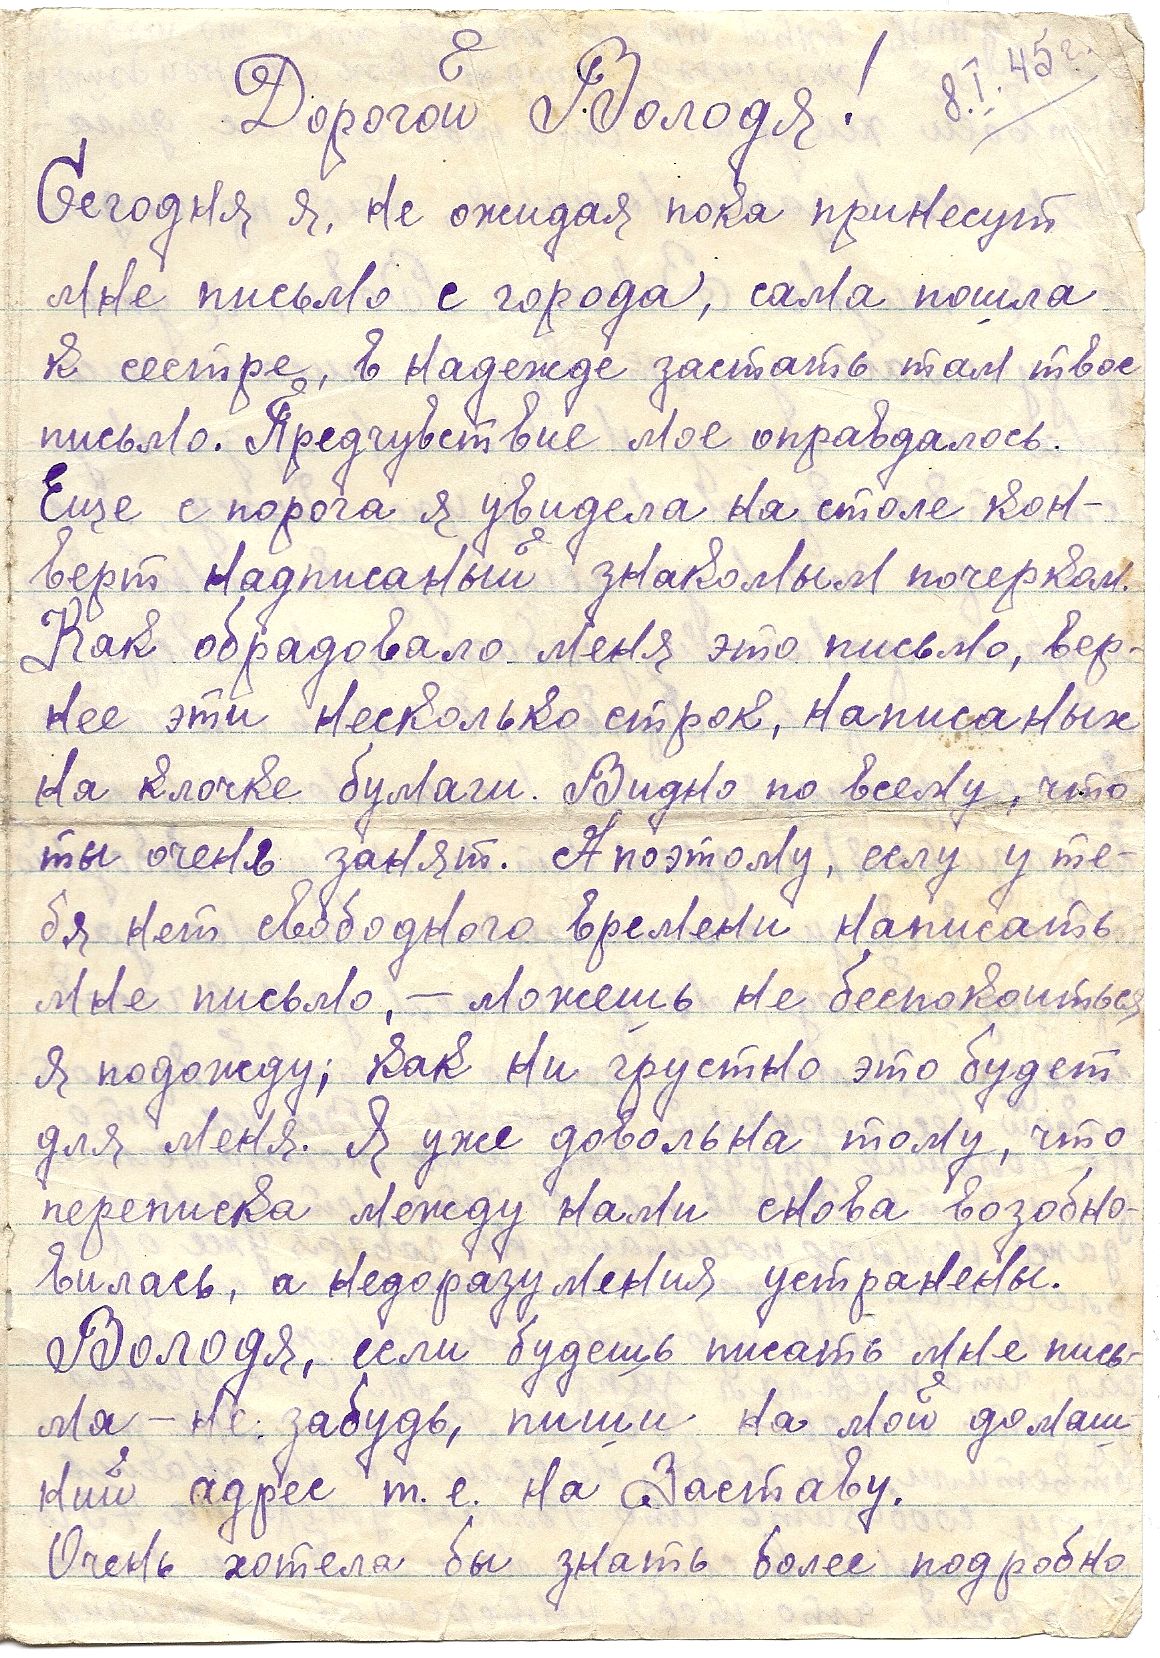 8.I.45г.
Дорогой Володя!
Сегодня я, не ожидая пока принесут
мне письмо с города, сама пошла
к сестре, в надежде застать там твое
письмо. Предчувствие мое оправдалось.
Еще с порога я увидела на столе кон-
верт надписаный знакомым почерком.
Как обрадовало меня это письмо, вер-
нее эти несколько строк, написаных
на клочке бумаги. Видно по всему, что
ты очень занят. А поэтому, еслу у те-
бя нет свободного времени написать
мне письмо, — можешь не беспокоиться
я подожду; как ни грустно это будет
для меня. Я уже довольна тому, что
переписка между нами снова возобно-
вилась, а недоразумения устранены.
Володя, если будешь писать мне пись-
ма — не забудь, пиши на мой домаш
ний адрес т.е. на Заставу.
Очень хотела бы знать более подробно